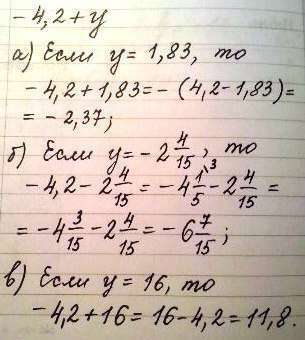 -4,2+y
а) Если y=1,83, то
-4,2+1,83=-(4,2-1,83)=
=-2,37;
б) Если y=-2 4/15, то
-4,2-2 4/15=-4 1/5 ³-2 4/15=
=-4 3/15-2 4/15=-6 7/15;
в) Если y=16, то
-4,2+16=16-4,2=11,8.